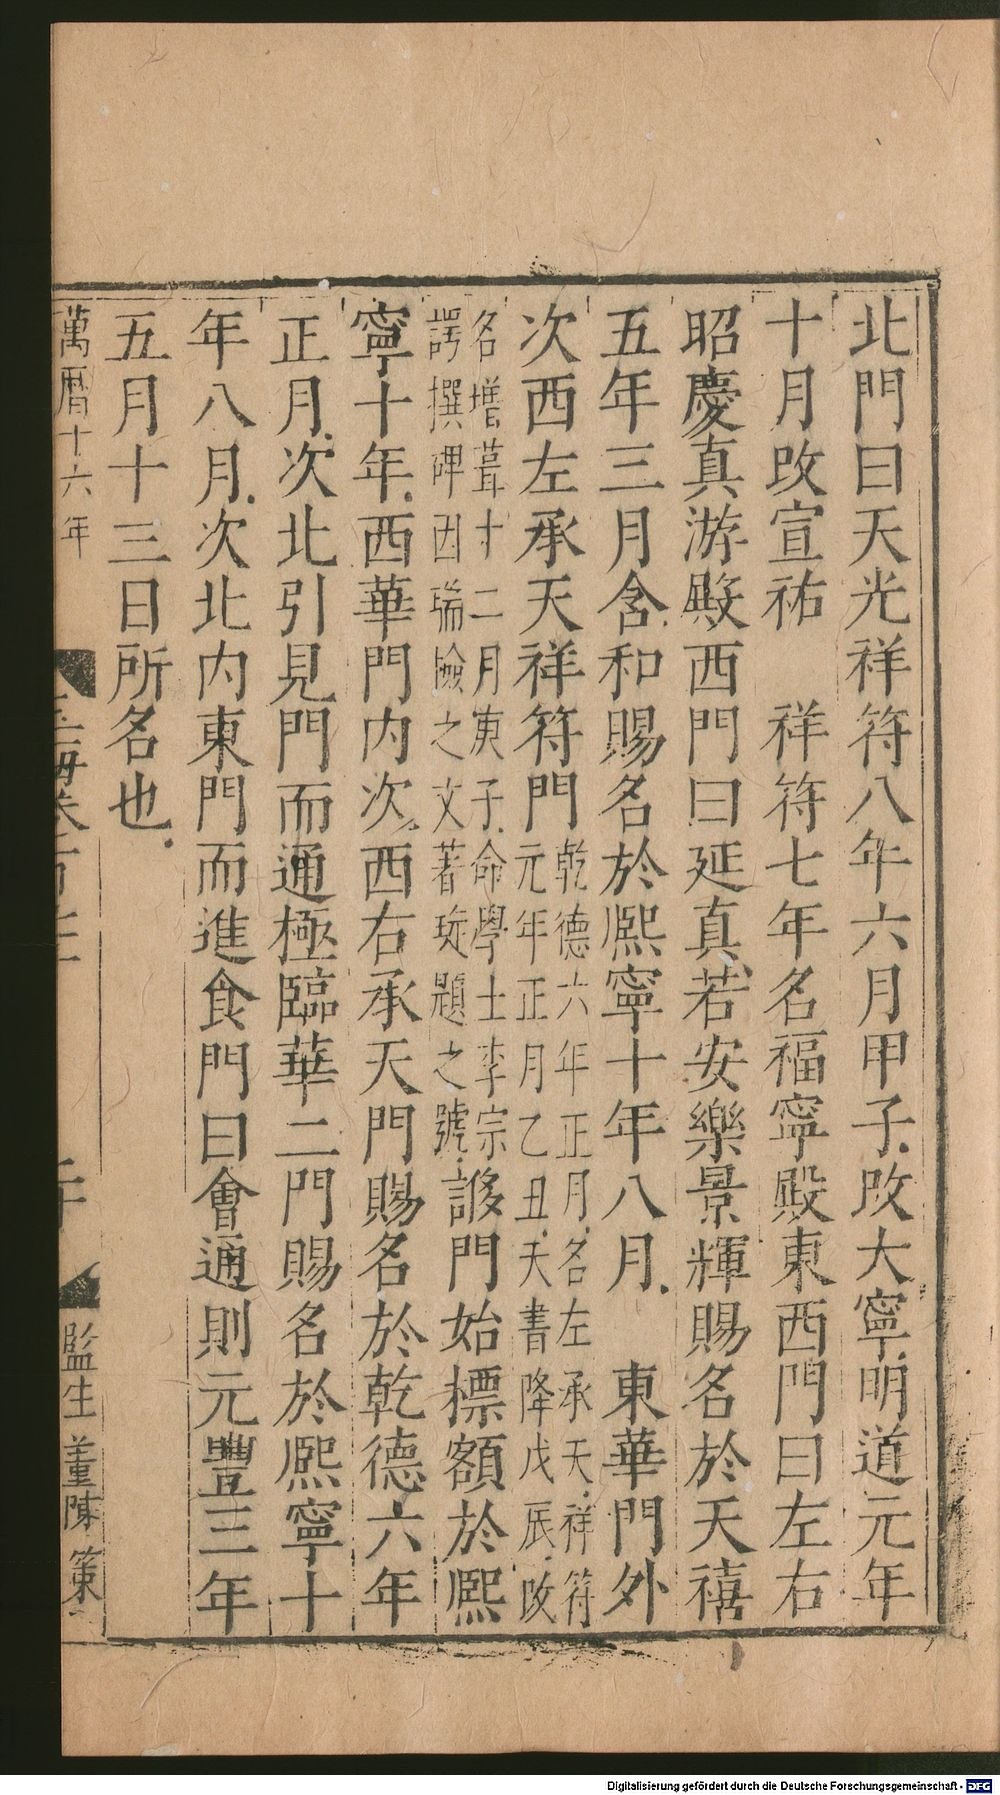 北門曰天光祥符八年六月甲子改大寧明道元年
十月改宣祐　祥符七年名福寧殿東西門曰左右
昭慶真游殿西門曰延真若安樂景輝賜名於天禧
五年三月含和賜名於熈寧十年八月　東華門外
次西左承天祥符門乾德六年正月名左承天祥符
元年正月乙丑天書降戊辰改
名增葺十二月庚子命學士李宗
諤撰碑因瑞險之文著琁題之號謻門始標額於熈
寧十年西華門内次西右承天門賜名於乾德六年
正月次北引見門而通極臨華二門賜名於熈寧十
年八月次北内東門而進食門曰會通則元豐三年
五月十三日所名也
萬曆十六年
玉海卷百
監生董陳策
Digitalisierung gefördert durch die Deutsche Forschungsgemeinschaft - DFG